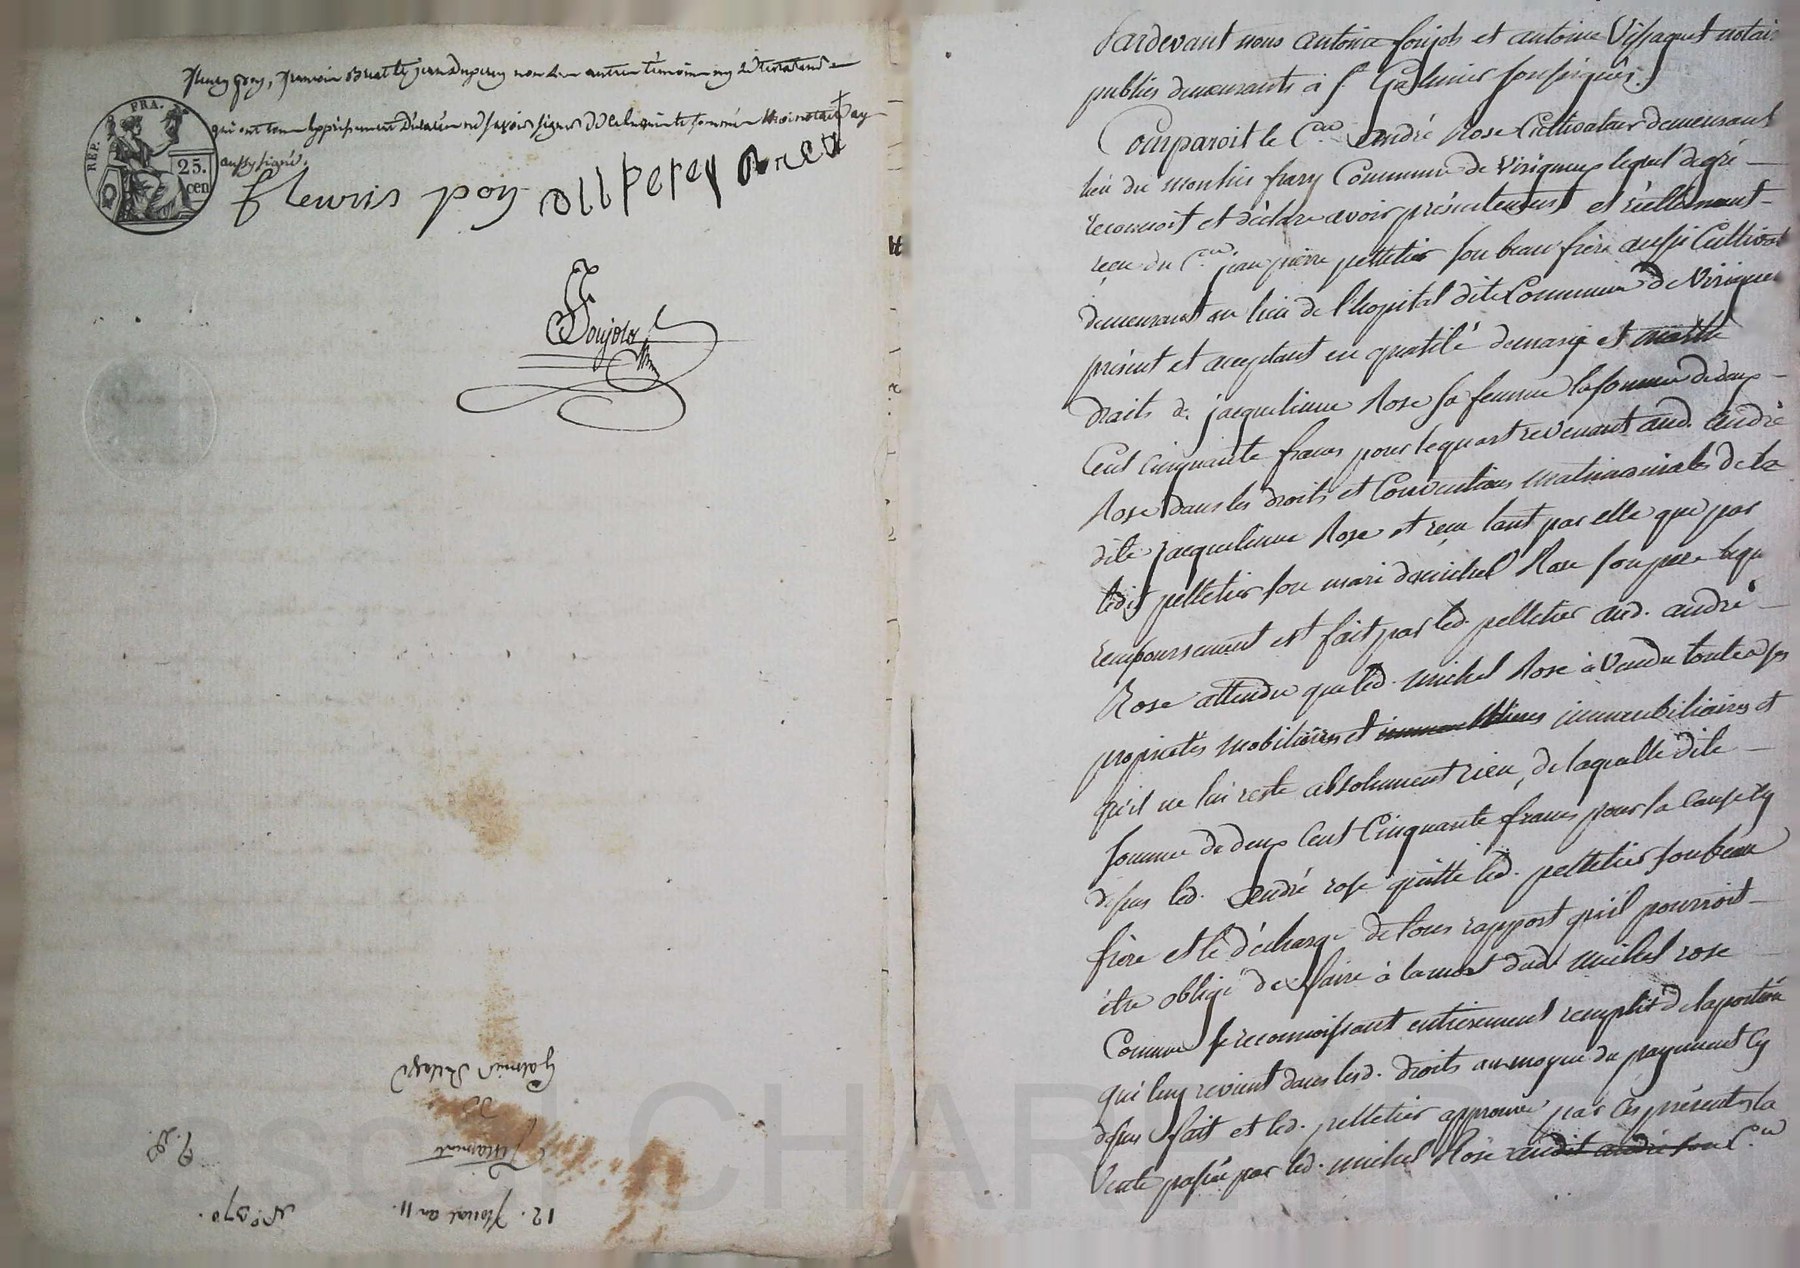 fleury poy, françois Briat & jean Duperey non les autres témoins ny le testateur
qui ont tous expressement déclaré ne savoir signer de ce enquis et sommés moi notaire ay
aussy signé.
REP. FRA.
25.
cen
fleuris poy Duperey Briat
Soujols
Nre
Galmier
de
Testament
12. floréal an 11.
N.° 370.
Pardevant nous antoine soujols et antoine Vissaguet notair
publics demeurants à S.t Galmier soussignés.
Comparoit le C.en andré Rose Cultivateur demeurant
lieu du Montnis frary Commune de Virigneux lequel de gré
reconnoit et déclare avoir présentement et réellement
reçu du C.en jean pierre pelletier son beau frère aussi Cultivat
demeurant au lieu de l'hopital dite Commune de Virigneu
présent et aceptant en qualité de mari et maitre
droits de jacquelinne Rose sa femme la somme de deux
Cent cinquante francs pour le quart revenant aud. andré
Rose dans les droits et Conventions matrimoniales de la
dite jacquelinne Rose et reçu tant par elle que par
ledit pelletier son mari de michel Rose son pere lequ
remboursement est fait par led. pelletier aud. andré
Rose attendu que led. michel Rose à Vendu toutes ses
propriétés mobiliaires et immobiliaires et
qu'il ne lui reste absolument rien, de laquelle dite
somme de deux Cent Cinquante francs pour la Cause cy
dessus led. andré rose quitte led. pelletier son beau
frère et le décharge de tous rapport qu'il pourroit
être obligé de faire à la mort dud. michel rose
Comme se reconnoissant entierement remplit de la portion
qui luy revient dans lesd. droits au moyen du payement cy
dessus fait et led. pelletier approuve par ces présentes la
Vente passée par led. michel Rose audit andré son C.en
CHAREYRON